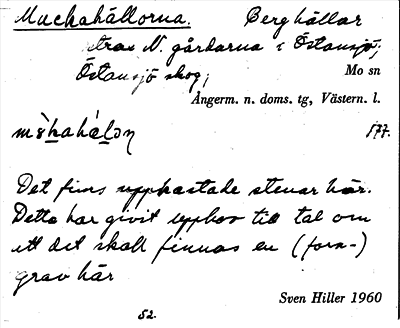 Muckahällorna. Berghällar
strax N. gårdarna i Östansjö;
Östansjö skog;
Mo sn
Ångerm. n. doms. tg, Västern. l.
577.
Det finns uppkastade stenar här.
Detta har givit upphov till tal om
att det skall finnas en (forn-)
grav här
Sven Hiller 1960
52.